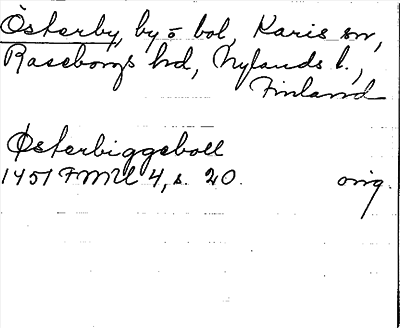 Österby, by o bol, Karis sn,
Raseborgs hd, Nylands l.,
Finland
Østerbiggeboll
1451 FMU 4, s. 20. orig.